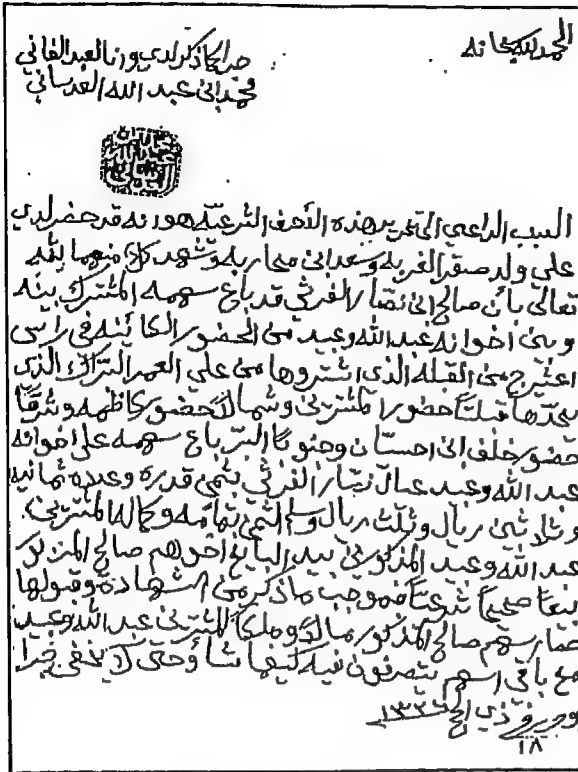 الحمد لله سبحانه
جرا كما ذكر لدي وانا العبد الفاني
محمد ابن عبد الله العدساني
السبب الداعي الى تحرير هذه الأحرف الشرعيه هو انه قد حضر لدي
علي ولد صقر الغربه وسعد ابن محاربه وشهد كلا منهما لله
تعالى بأن صالح ابن نصار القرشي قد باع سهمه المشترك بينه
وبين اخوانه عبد الله وعبيد من الحضور الكائنه في راس
اعثيرج من القبله الذي اشتروها من علي العمر التراك الذي
يحدها قبلتاً حضور المشترين وشمالاً حضور كاظمه وشرقاً
حضور خلف ابن احسان وجنوباً البر باع سهمه على اخوانه
عبد الله وعبيد عيال نصار القرشي بثمن قدره وعداه ثمانيه
وثلاثين ريال وثلث ريال وسلم الثمن بتمامه وكماله المشترين
عبد الله وعبيد المذكورين بيد البايع اخوهم صالح المذكور
بيعاً صحيحاً شرعياً فبموجب ما ذكر من الشهادة وقبولها
صار سهم صالح المذكور مالاً وملكاً للمشترين عبد الله وعبيد
مع باقي اسهم يتصرفون فيه كيفما شاؤ وحتى لا يخفى جرا
وحرر في ذي الحج
١٨